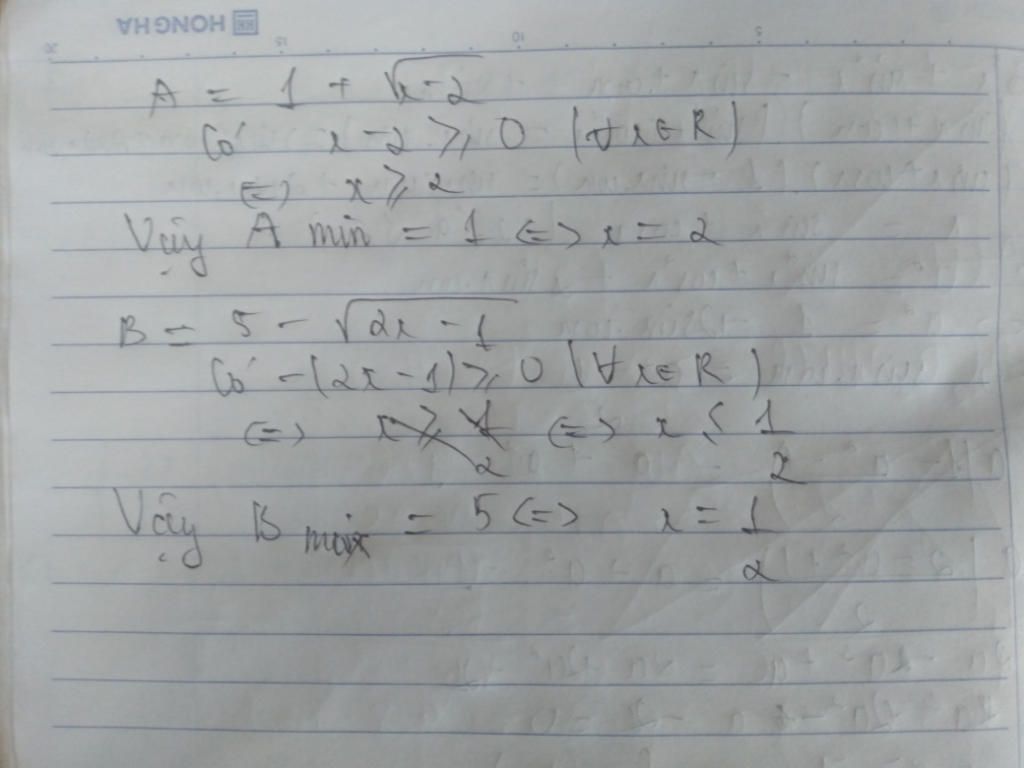 HONG HA
20 15 10 5
A = 1 + √(x-2)
Có x-2 ≥ 0 (∀x∈R)
<=> x ≥ 2
Vậy A min = 1 <=> x = 2
B = 5 - √(2x-1)
Có -(2x-1) ≥ 0 (∀x∈R)
<=> x ≥ 1/2 <=> x ≤ 1/2
Vậy B max = 5 <=> x = 1/2